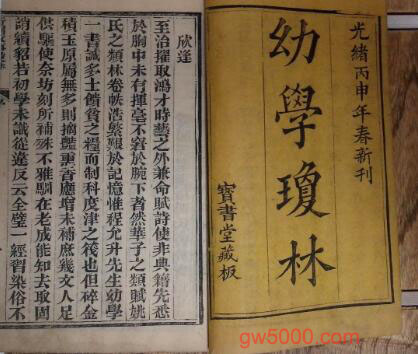 光緒丙申年春新刊
幼學瓊林
寶書堂藏板
欣逢
至治擢取鴻才時藝之外兼命賦詩使非典籍先悉
於胸中未有揮毫不窘於腕下者然華子之類賦姚
氏之類林卷帙浩繁艱於記憶惟程允升先生幼學
一書誠多士饋貧之糧而制科度津之筏也但碎金
積玉原屬無多則摘艷熏香應增未補庶幾文人足
供驅使奈坊刻所補殊不雅馴在老成能知去取固
誚續貂若初學未識從違反云全璧一經習染俗不
gw5000.com